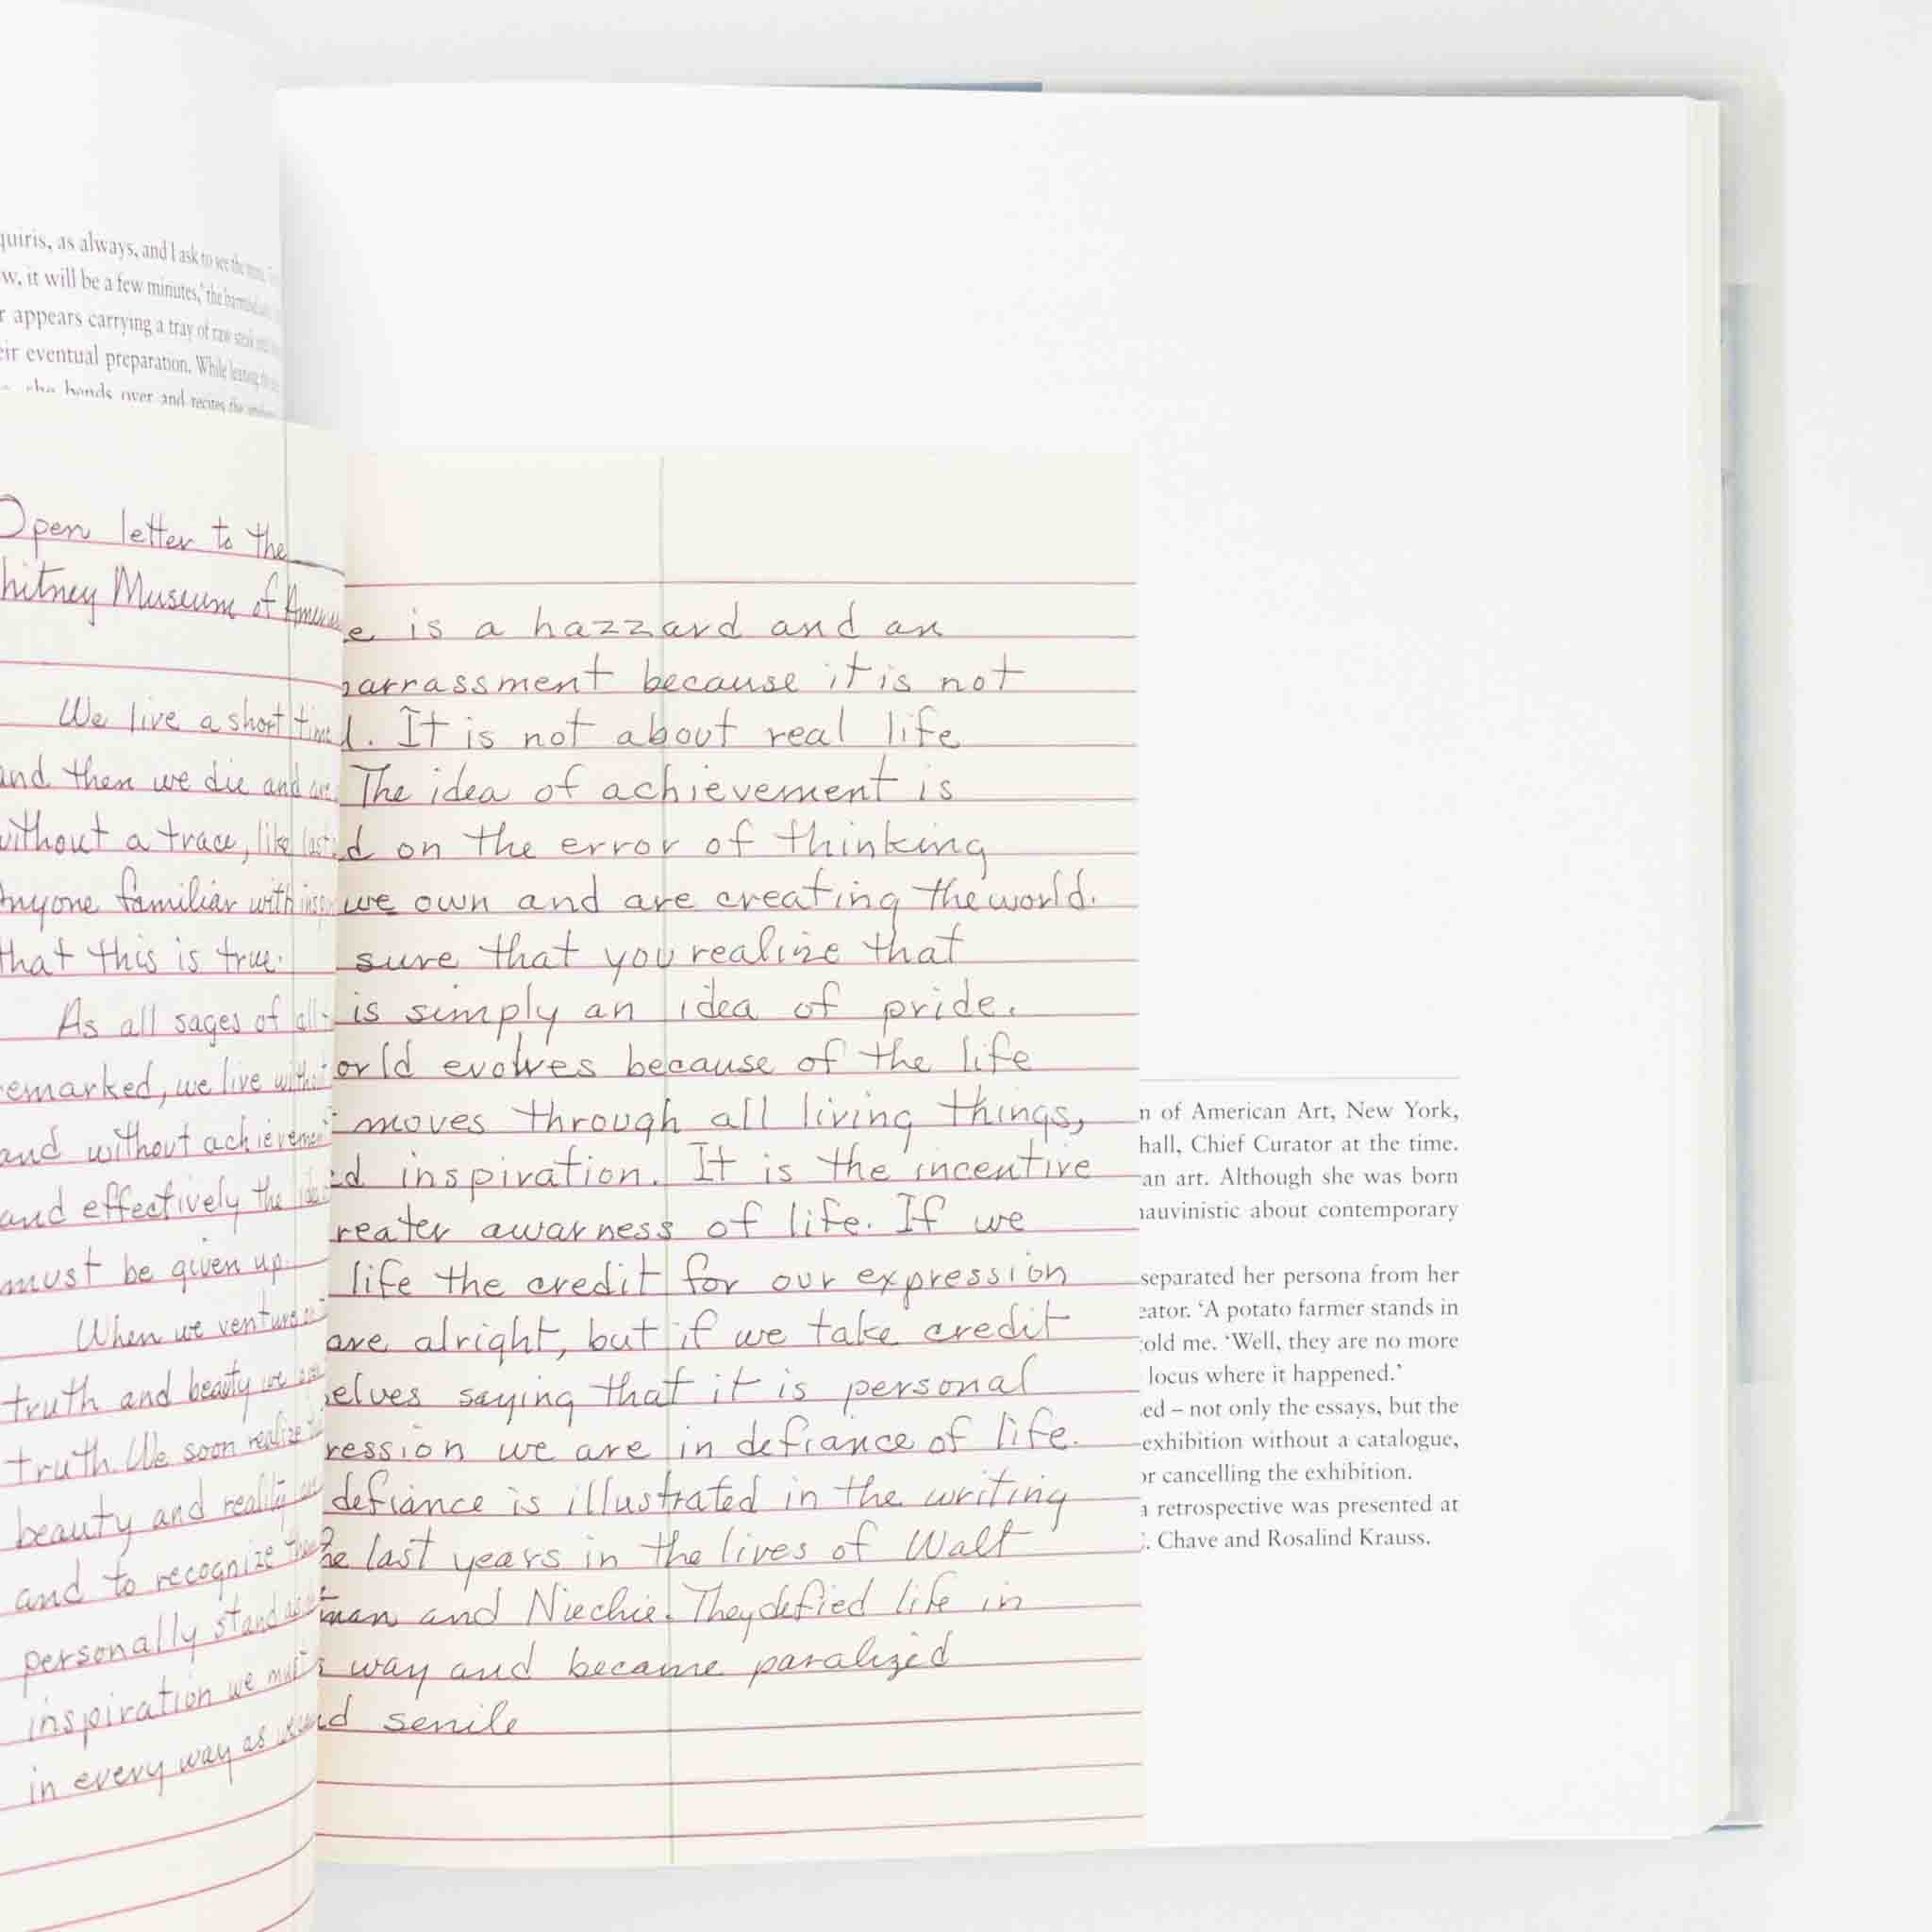 quiris, as always, and I ask to see the
w, it will be a few minutes,' the
r appears carrying a tray of raw
eir eventual preparation. While
she bends over and recites the
Open letter to the
hitney Museum of
We live a short time
and then we die and are
without a trace, like
Anyone familiar with
that this is true.
As all sages of all
emarked, we live
and without
and effectively the
must be given up.
When we venture
truth and beauty we
truth. We soon realize
beauty and reality
and to recognize
personally stand
inspiration we
in every way as
e is a hazzard and an
arrassment because it is not
l. It is not about real life
The idea of achievement is
d on the error of thinking
we own and are creating the world.
sure that you realize that
is simply an idea of pride.
orld evolves because of the life
moves through all living things,
ed inspiration. It is the incentive
reater awarness of life. If we
life the credit for our expression
are alright, but if we take credit
selves saying that it is personal
ression we are in defiance of life.
defiance is illustrated in the writing
he last years in the lives of Walt
man and Niechie. They defied life in
s way and became paralized
nd senile
n of American Art, New York,
hall, Chief Curator at the time.
an art. Although she was born
hauvinistic about contemporary
separated her persona from her
eator. 'A potato farmer stands in
told me. 'Well, they are no more
locus where it happened.'
ed – not only the essays, but the
exhibition without a catalogue,
or cancelling the exhibition.
a retrospective was presented at
. Chave and Rosalind Krauss.